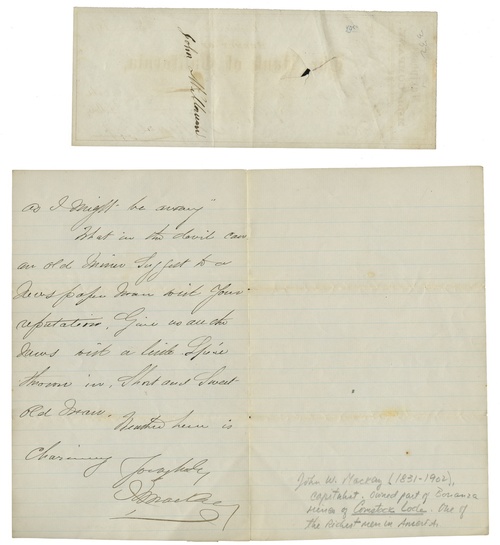 John
Bank of California
as I might be away
What in the devil can
an old miner suggest to a
News paper man with Your
reputation. Give us all the
News with a little Spice
thrown in, Short and Sweet
Old Man.
Weather here is
Charming
John W. Mackay (1831-1902),
capitalist, owned part of Bonanza
mines of Comstock Lode. One of
the richest men in America.